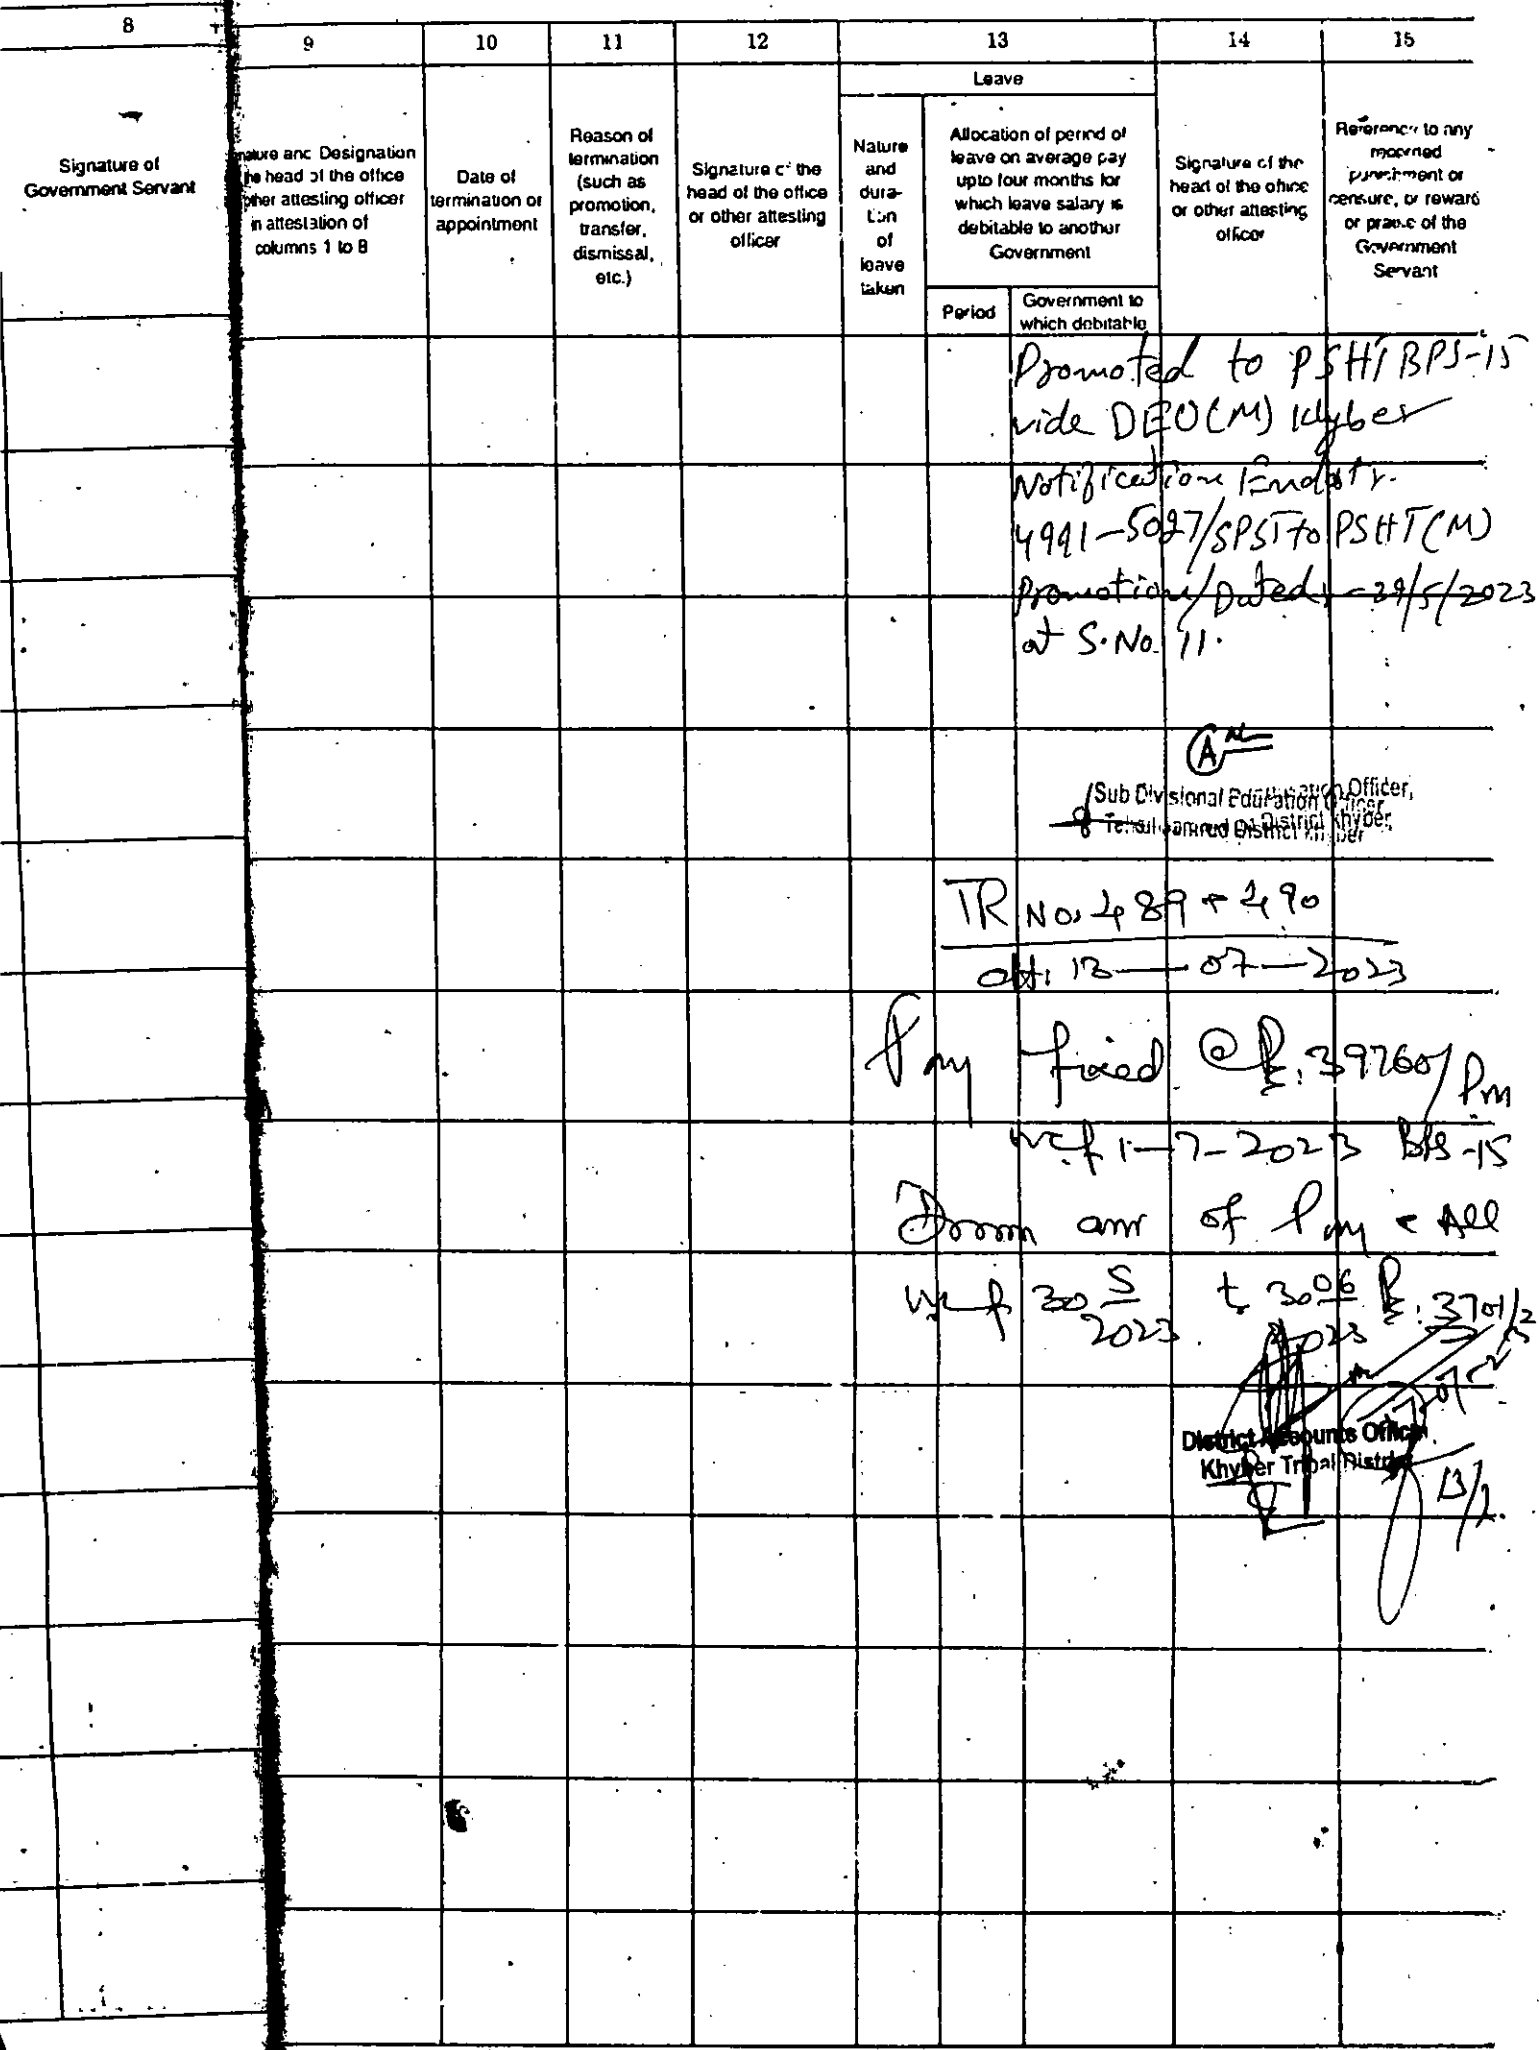 8
9
10
11
12
13
14
15
Leave
Signature of
Government Servant
nature and Designation
he head of the office
other attesting officer
in attestation of
columns 1 to 8
Date of
termination or
appointment
Reason of
termination
(such as
promotion,
transfer,
dismissal,
etc.)
Signature of the
head of the office
or other attesting
officer
Nature
and
dura-
tion
of
leave
taken
Allocation of period of
leave on average pay
upto four months for
which leave salary is
debitable to another
Government
Period
Government to
which debitable
Signature of the
head of the office
or other attesting
officer
Reference to any
recorded
punishment or
censure, or reward
or praise of the
Government
Servant
Promoted to PSHT BPS-15
vide DEO(M) Khyber
Notification Endstt.
4991-5027/SPST to PSHT(M)
Promotion/Dated:-29/5/2023
at S.No. 11.
Sub Divisional Education Officer,
Tehsil Jamrud District Khyber
TR No. 489 + 490
dt. 13-07-2023
Pay fixed @ Rs. 39760/Pm
w.e.f 1-7-2023 BPS-15
Drawn arr of Pay & All
w.e.f 30 5 2023 to 30 06 2023 Rs. 3701/2
District Accounts Officer
Khyber Tribal District
13/7